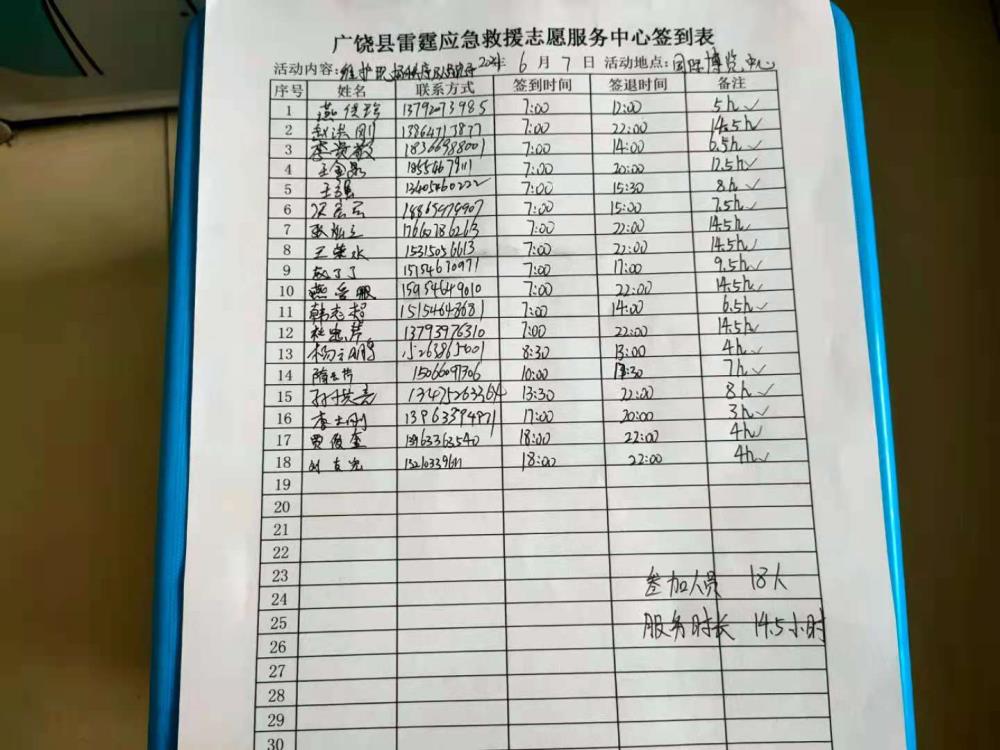 广饶县雷霆应急救援志愿服务中心签到表
活动内容:维护现场秩序 年 6 月 7 日 活动地点:国际博览中心
序号 姓名 联系方式 签到时间 签退时间 备注
1 13792073985 7:00 12:00 5h✓
2 赵洪刚 13864713877 7:00 22:00 14.5h✓
3 18366988001 7:00 14:00 6.5h✓
4 7:00 20:00 12.5h✓
5 王强 13405460222 7:00 15:30 8h✓
6 7:00 15:00 7.5h✓
7 17660786263 7:00 22:00 14.5h✓
8 王荣水 15315056613 7:00 22:00 14.5h✓
9 赵丁丁 15154670971 7:00 17:00 9.5h✓
10 15954649010 7:00 22:00 14.5h✓
11 韩志超 15154648681 7:00 14:00 6.5h✓
12 杜忠芹 13793976310 7:00 22:00 14.5h✓
13 8:30 13:00 4h✓
14 15066097306 10:00 7h✓
15 13475263364 13:30 22:00 8h✓
16 李士刚 13963394971 17:00 20:00 3h✓
17 贾俊奎 13963363540 18:00 22:00 4h✓
18 18:00 22:00 4h✓
19
20
21
22
23
参加人员 18人
24
25
服务时长 14.5小时
26
27
28
29
30